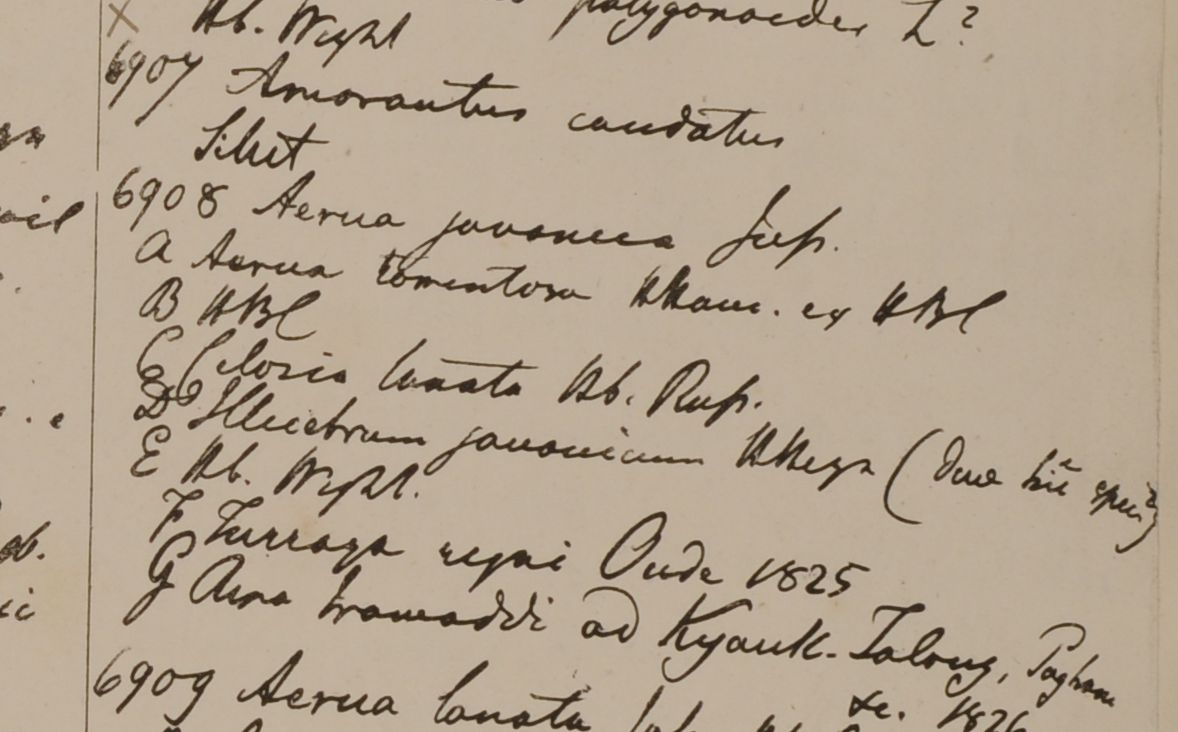 polygonoides L?
Hb. Wight
6907 Amarantus caudatus
Silhet
6908 Aerua javanica Jusf.
A Aerua tomentosa HHam. ex HBC
B HBC
C Celosia lanata Hb. Russ.
D Illecebrum javanicum HHeyn (duae hic spec?)
E Hb. Wight.
F Turraya regni Oude 1825
G Ava Irawaddi ad Kyouk-Talong, Pagham
&c. 1826
6909 Aerua lanata